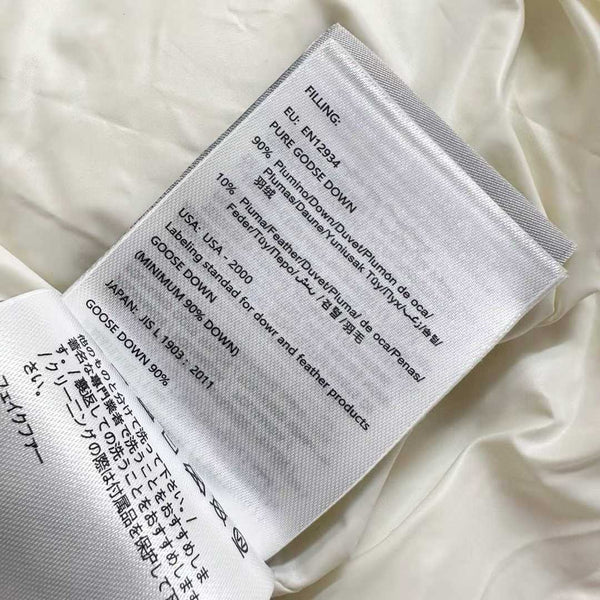 FILLING:
EU: EN12934
PURE GODSE DOWN
90% Plumho/Down/Duvet/Plumón de oca/
Plumas/Daune/Yunlusak Tüy/Пух/زغب/솜털/
羽绒
10% Pluma/Feather/Duvet/Pluma/ de oca/Penas/
Feder/Tüy/Перо/ريش/깃털/羽毛
USA: USA - 2000
Labeling standad for dowr and feather products
GOOSE DOWN
(MINIMUM 90% DOWN)
JAPAN: JIS L 1903 : 2011
GOOSE DOWN 90%
他のものと分けて洗って下さい。/
著名な専門業者で洗うことをおすすめしま
す。/裏返しての洗うことをおすすめします
/クリーニングの際は付属品を保護して下
さい。
フェイクファー